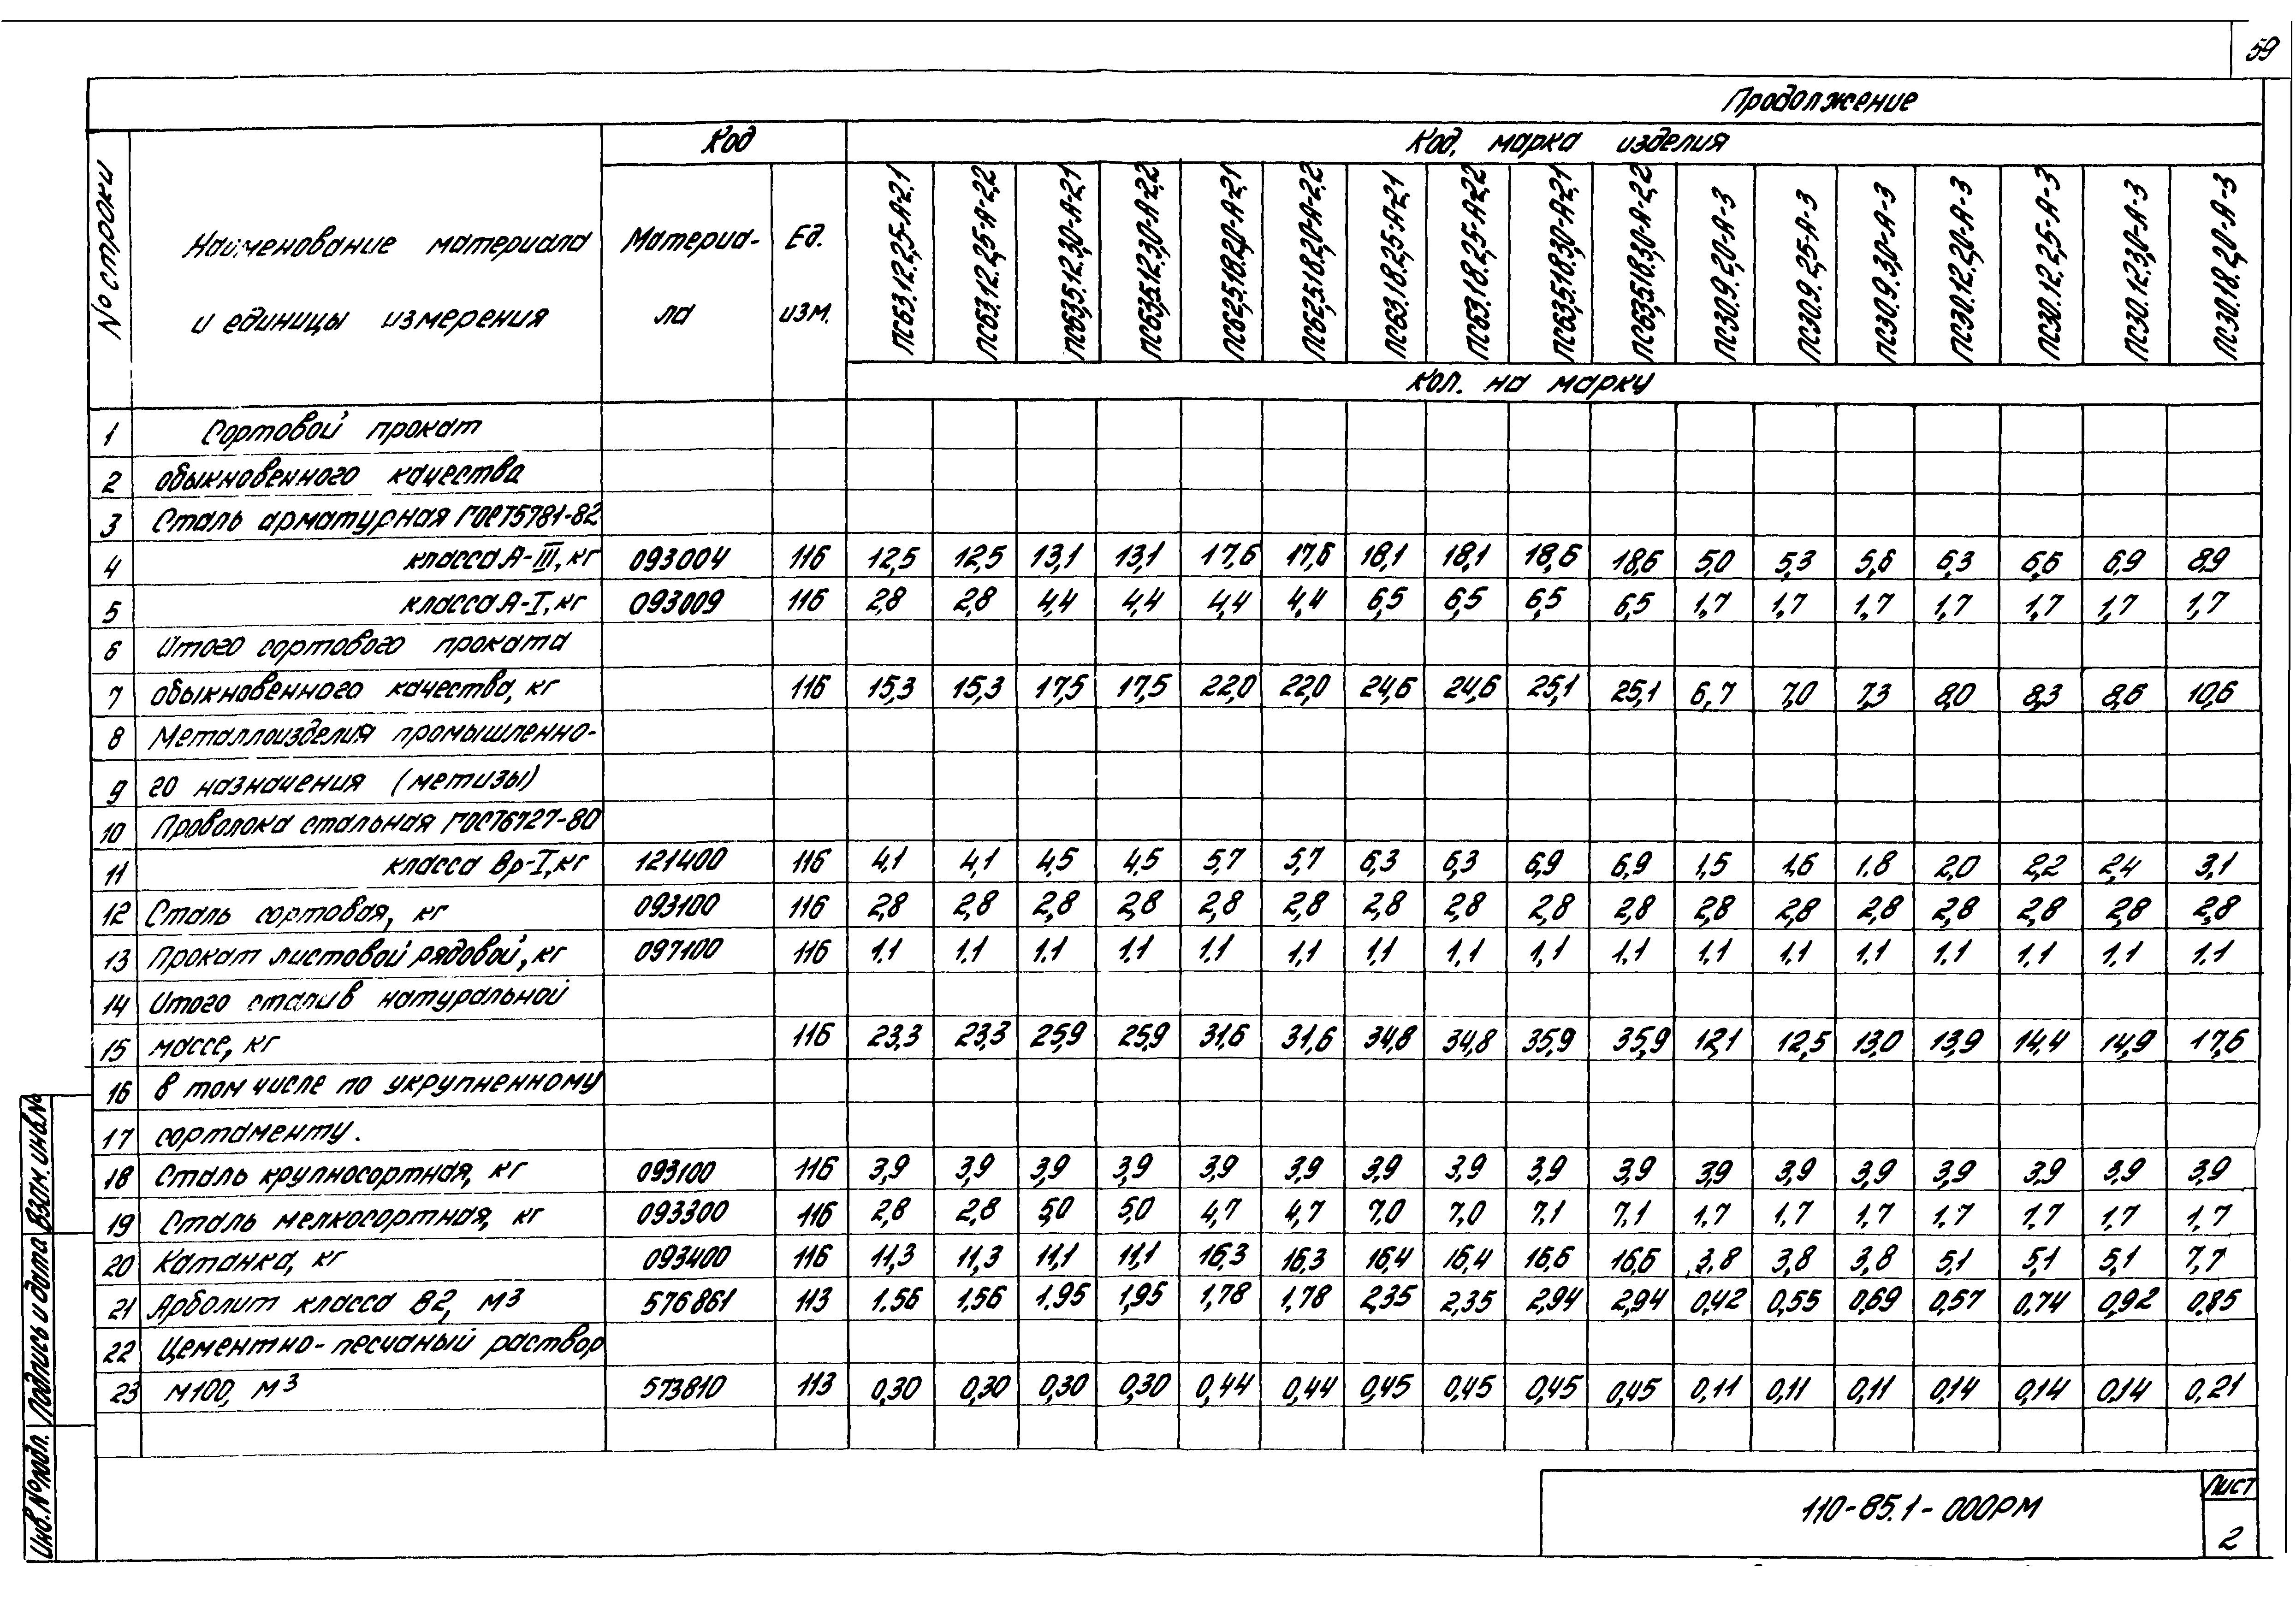 59
Продолжение
№ строки
Наименование материала и единицы измерения
Код
Материа-ла
Ед. изм.
Код, марка изделия
ПС63.12.2,5-А-2.1 ПС63.12.2,5-А-2,2 ПС63,5.12.3,0-А-2,1 ПС63,5.12.3,0-А-2,2 ПС62,5.18.2,0-А-2,1 ПС62,5.18.2,0-А-2,2 ПС63.18.2,5-А-2,1 ПС63.18.2,5-А-2,2 ПС63,5.18.3,0-А-2,1 ПС63,5.18.3,0-А-2,2 ПС30.9.2,0-А-3 ПС30.9.2,5-А-3 ПС30.9.3,0-А-3 ПС30.12.2,0-А-3 ПС30.12.2,5-А-3 ПС30.12.3,0-А-3 ПС30.18.2,0-А-3
Кол. на марку
1 Сортовой прокат
2 обыкновенного качества
3 Сталь арматурная ГОСТ5781-82
4 класса А-III, кг 093004 116 12,5 12,5 13,1 13,1 17,6 17,6 18,1 18,1 18,6 18,6 5,0 5,3 5,6 6,3 6,6 6,9 8,9
5 класса А-I, кг 093009 116 2,8 2,8 4,4 4,4 4,4 4,4 6,5 6,5 6,5 6,5 1,7 1,7 1,7 1,7 1,7 1,7 1,7
6 Итого сортового проката
7 обыкновенного качества, кг 116 15,3 15,3 17,5 17,5 22,0 22,0 24,6 24,6 25,1 25,1 6,7 7,0 7,3 8,0 8,3 8,6 10,6
8 Металлоизделия промышленно-
9 го назначения (метизы)
10 Проволока стальная ГОСТ6727-80
11 класса Вр-I, кг 121400 116 4,1 4,1 4,5 4,5 5,7 5,7 6,3 6,3 6,9 6,9 1,5 1,6 1,8 2,0 2,2 2,4 3,1
12 Сталь сортовая, кг 093100 116 2,8 2,8 2,8 2,8 2,8 2,8 2,8 2,8 2,8 2,8 2,8 2,8 2,8 2,8 2,8 2,8 2,8
13 Прокат листовой рядовой, кг 097100 116 1.1 1.1 1.1 1.1 1.1 1,1 1.1 1.1 1,1 1.1 1.1 1.1 1.1 1.1 1.1 1.1 1.1
14 Итого стали в натуральной
15 массе, кг 116 23,3 23,3 25,9 25,9 31,6 31,6 34,8 34,8 35,9 35,9 12,1 12,5 13,0 13,9 14,4 14,9 17,6
16 в том числе по укрупненному
17 сортаменту.
18 Сталь крупносортная, кг 093100 116 3,9 3,9 3,9 3,9 3,9 3,9 3,9 3,9 3,9 3,9 3,9 3,9 3,9 3,9 3,9 3,9 3,9
19 Сталь мелкосортная, кг 093300 116 2,8 2,8 5,0 5,0 4,7 4,7 7,0 7,0 7,1 7,1 1,7 1,7 1,7 1,7 1,7 1,7 1,7
20 Катанка, кг 093400 116 11,3 11,3 11,1 11,1 16,3 16,3 16,4 16,4 16,6 16,6 3,8 3,8 3,8 5,1 5,1 5,1 7,7
21 Арболит класса В2, м3 576861 113 1.56 1,56 1.95 1,95 1,78 1.78 2,35 2,35 2,94 2,94 0,42 0,55 0,69 0,57 0,74 0,92 0,85
22 Цементно-песчаный раствор
23 М100, м3 573810 113 0,30 0,30 0,30 0,30 0,44 0,44 0,45 0,45 0,45 0,45 0,11 0,11 0,11 0,14 0,14 0,14 0,21
Инв.№подл. Подпись и дата Взам. инв.№
110-85.1-000РМ
Лист
2